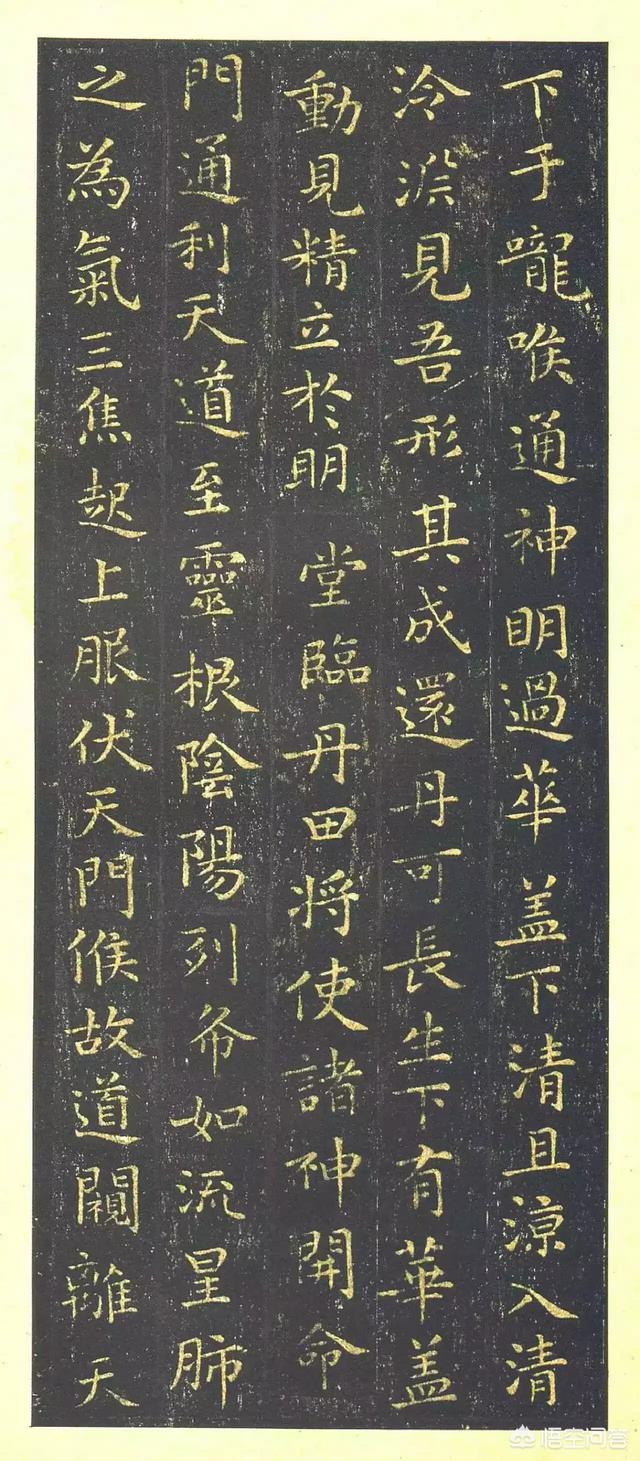 下于嚨喉通神明過華盖下清且涼入清
泠淵見吾形其成還丹可長生下有華盖
動見精立於明堂臨丹田将使諸神開命
門通利天道至靈根陰陽列布如流星肺
之為氣三焦起上服伏天門候故道闚離天
悟空问答